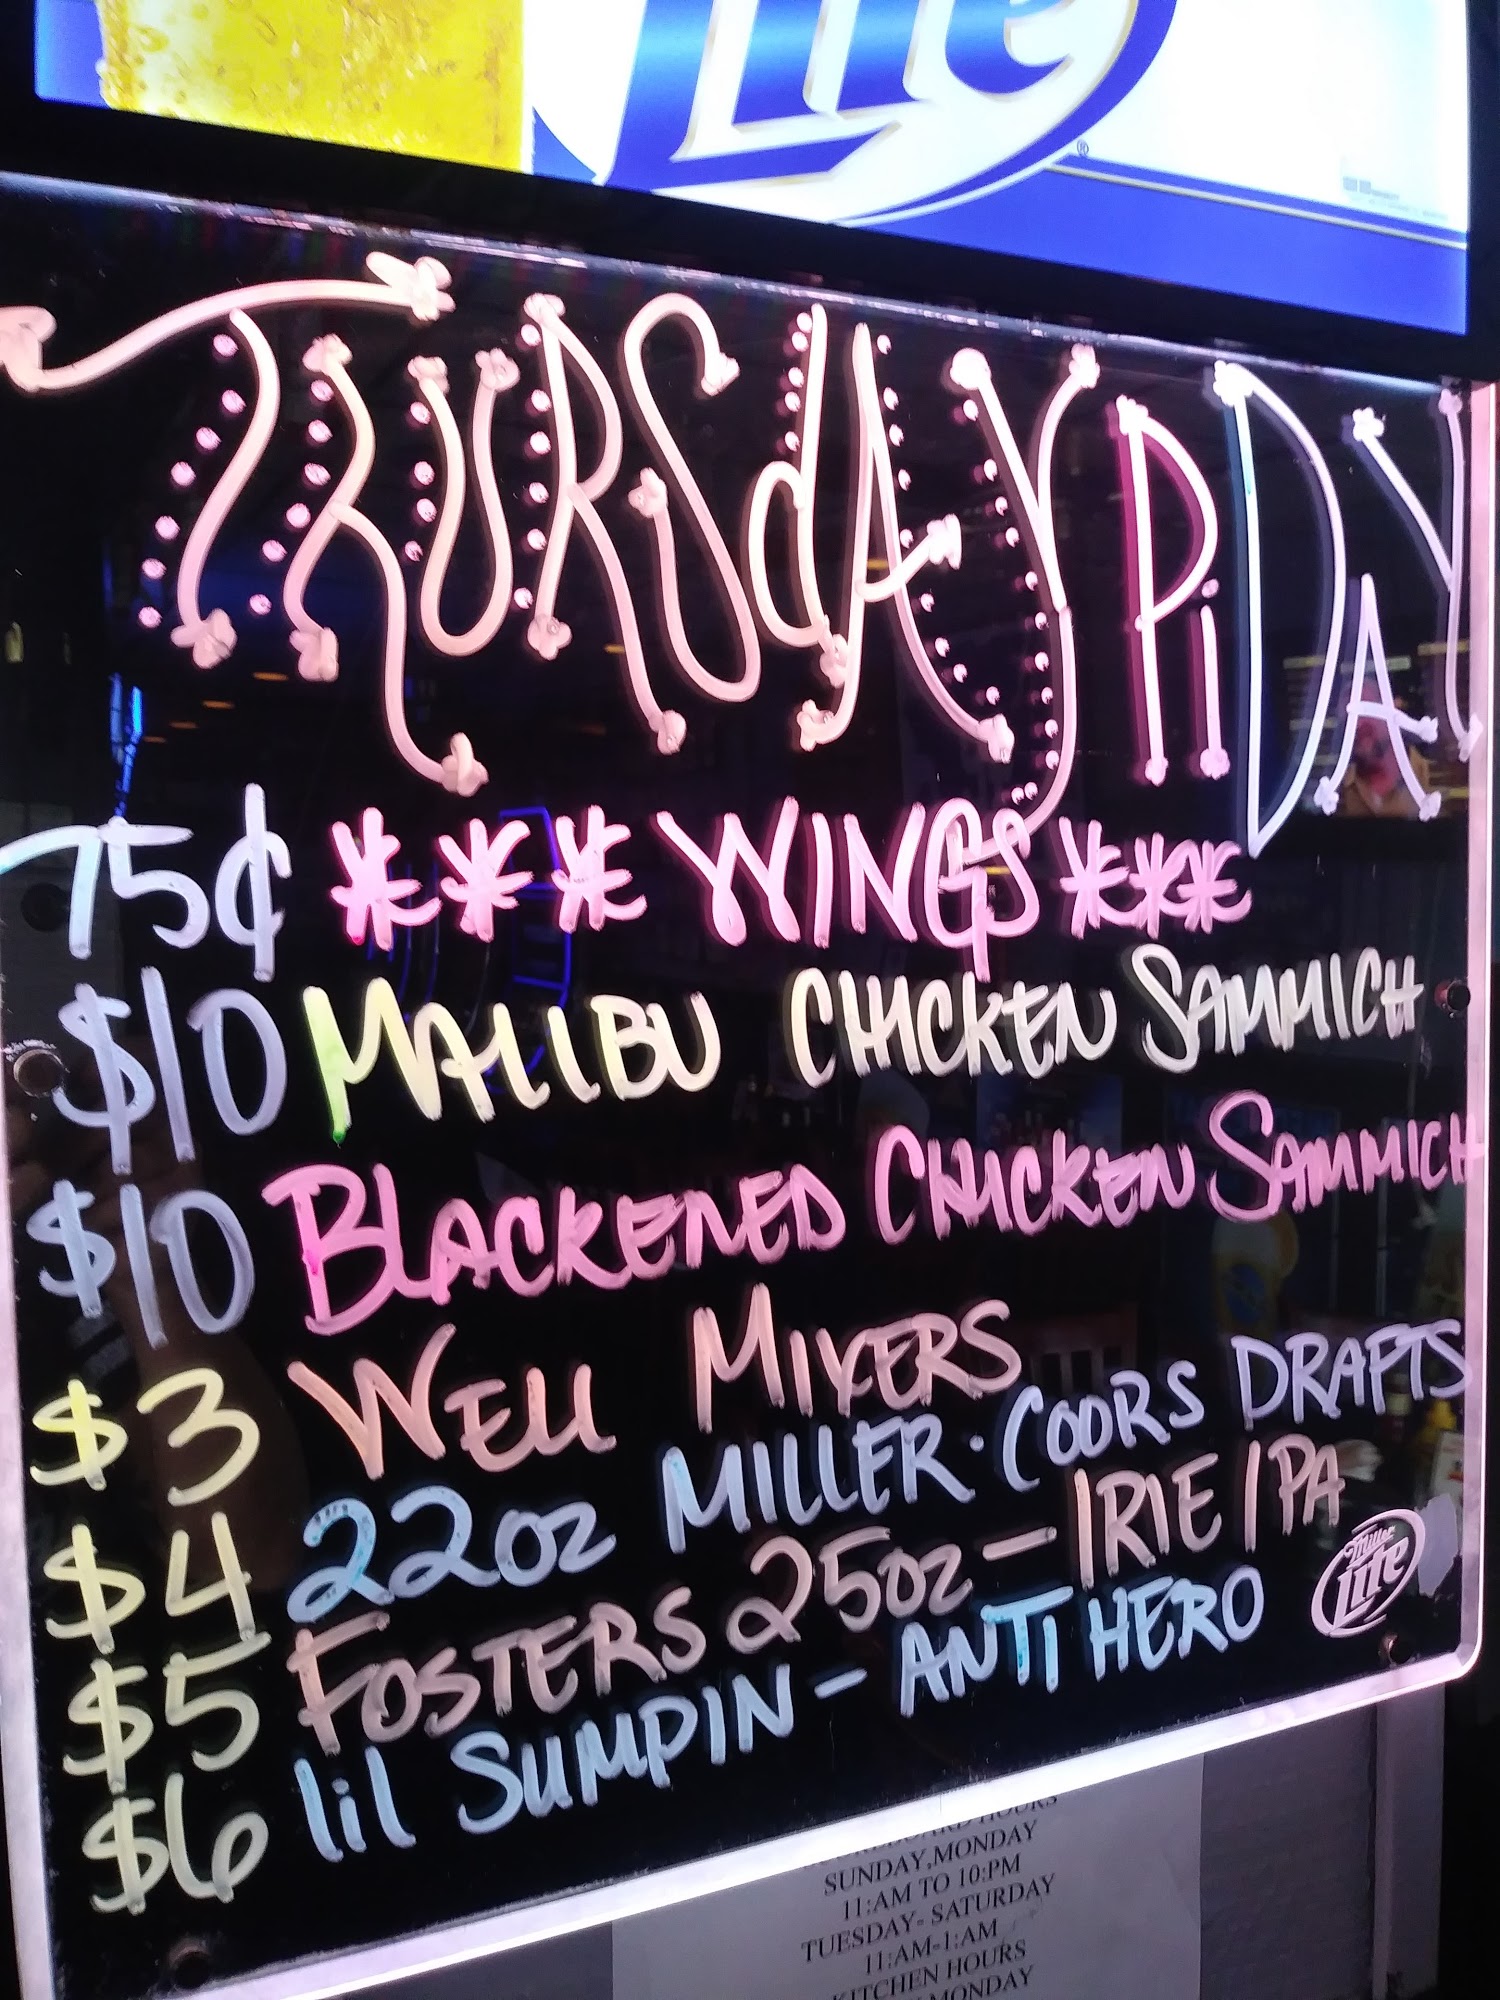 Lite
THURSdAY Pi DAY
75¢ *** WINGS ***
$10 MALIBU CHICKEN SAMMICH
$10 BLACKENED CHICKEN SAMMICH
$3 WELL MIXERS
$4 22oz MILLER · COORS DRAFTS
$5 FOSTERS 25oz – IRIE IPA
$6 lil SUMPIN – ANTI HERO
Miller
Lite
HOURS
SUNDAY,MONDAY
11:AM TO 10:PM
TUESDAY- SATURDAY
11:AM-1:AM
KITCHEN HOURS
MONDAY